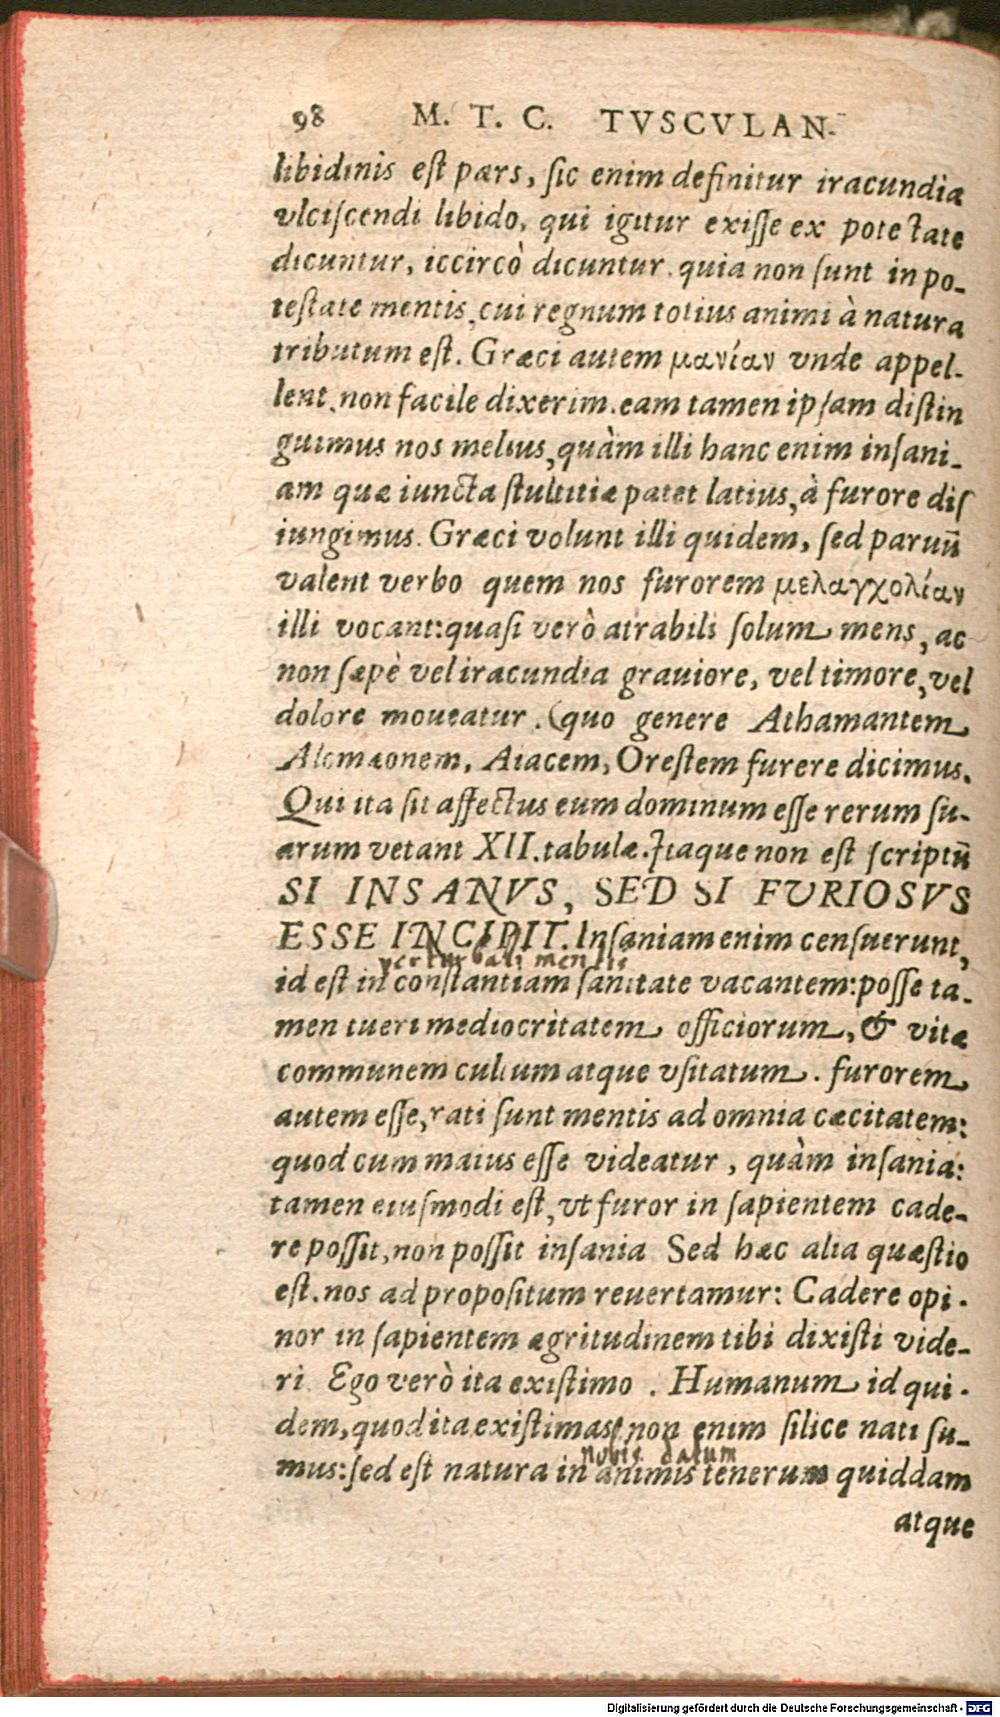 98 M. T. C. TVSCVLAN.
libidinis est pars, sic enim definitur iracundia
vlciscendi libido, qui igitur exisse ex potestate
dicuntur, iccircò dicuntur. quia non sunt in po-
testate mentis, cui regnum totius animi à natura
tributum est. Græci autem μανίαν vnde appel-
lent, non facile dixerim. eam tamen ipsam distin
guimus nos melius, quàm illi hanc enim insani-
am quæ iuncta stultitiæ patet latius, à furore dis
iungimus. Græci volunt illi quidem, sed paruū
valent verbo quem nos furorem μελαγχολίαν
illi vocant: quasi verò atrabili solum mens, ac
non sæpè vel iracundia grauiore, vel timore, vel
dolore moueatur. (quo genere Athamantem
Alcmæonem, Aiacem, Orestem furere dicimus.
Qui ita sit affectus eum dominum esse rerum su-
arum vetant XII. tabulæ. Itaque non est scriptū
SI INSANVS, SED SI FVRIOSVS
ESSE INCIPIT. Insaniam enim censuerunt,
perturbati mentis
id est inconstantiam sanitate vacantem: posse ta-
men tueri mediocritatem officiorum, & vitæ
communem cultum atque vsitatum. furorem
autem esse, rati sunt mentis ad omnia cæcitatem:
quod cum maius esse videatur, quàm insania:
tamen eiusmodi est, vt furor in sapientem cade-
re possit, non possit insania Sed hæc alia quæstio
est. nos ad propositum reuertamur: Cadere opi-
nor in sapientem ægritudinem tibi dixisti vide-
ri. Ego verò ita existimo. Humanum id qui-
dem, quod ita existimas, non enim silice nati su-
nobis datum
mus: sed est natura in animis tenerum quiddam
atque
Digitalisierung gefördert durch die Deutsche Forschungsgemeinschaft - DFG